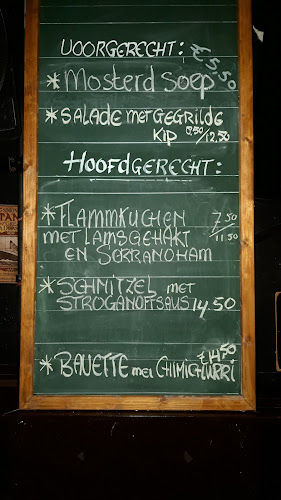 VOORGERECHT: €5,50
* MOSTERD SOEP
* SALADE MET GEGRILDE
KIP 8,50/12,50
HOOFDGERECHT:
* FLAMMKUCHEN 7,50
MET LAMSGEHAKT /11,50
EN SERRANOHAM
* SCHNITZEL MET
STROGANOFFSAUS 14,50
* BAVETTE MET CHIMICHURRI €14,50